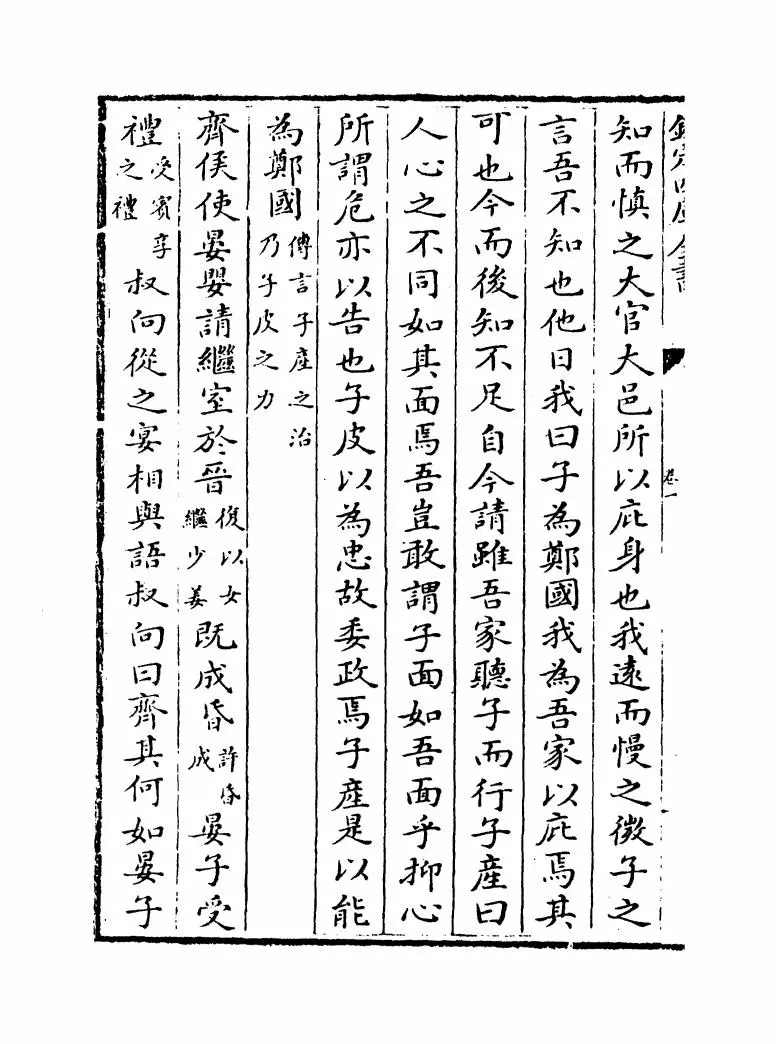 欽定四庫全書
卷一
知而慎之大官大邑所以庇身也我遠而慢之微子之
言吾不知也他日我曰子為鄭國我為吾家以庇焉其
可也今而後知不足自今請雖吾家聽子而行子產曰
人心之不同如其面焉吾豈敢謂子面如吾面乎抑心
所謂危亦以告也子皮以為忠故委政焉子產是以能
為鄭國傳言子產之治乃子皮之力
齊侯使晏嬰請繼室於晉復以女繼少姜既成昏許昏成晏子受
禮受賓享之禮叔向從之宴相與語叔向曰齊其何如晏子